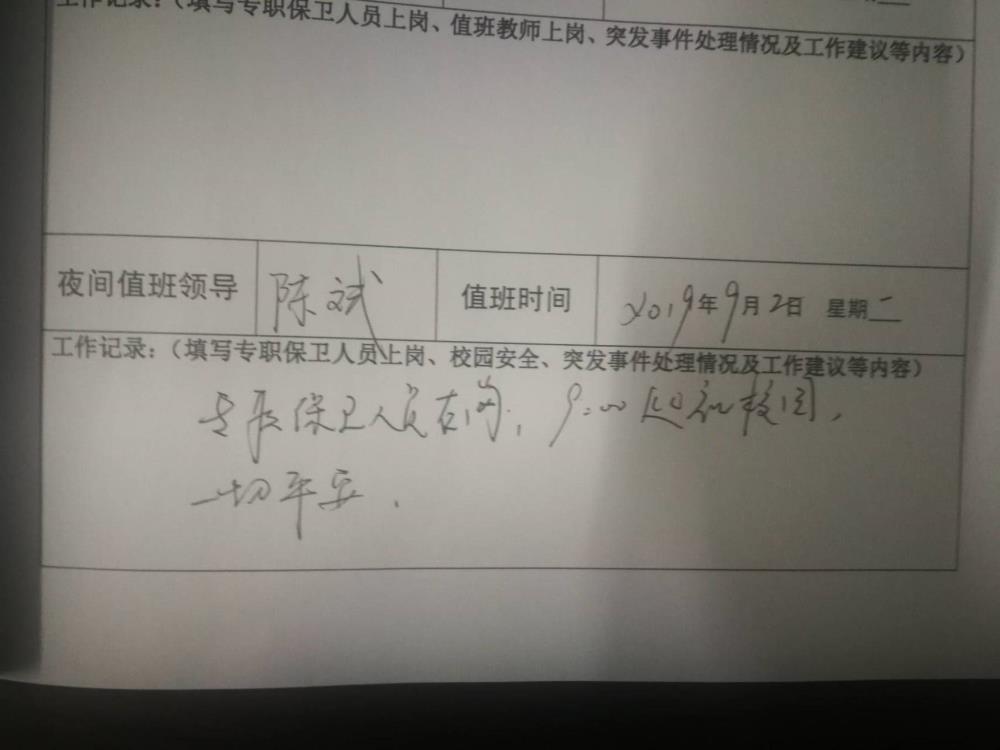 工作记录：（填写专职保卫人员上岗、值班教师上岗、突发事件处理情况及工作建议等内容）
夜间值班领导 陈斌 值班时间 2019年9月2日 星期二
工作记录：（填写专职保卫人员上岗、校园安全、突发事件处理情况及工作建议等内容）
专职保卫人员在岗，9:00 校园，
一切平安.